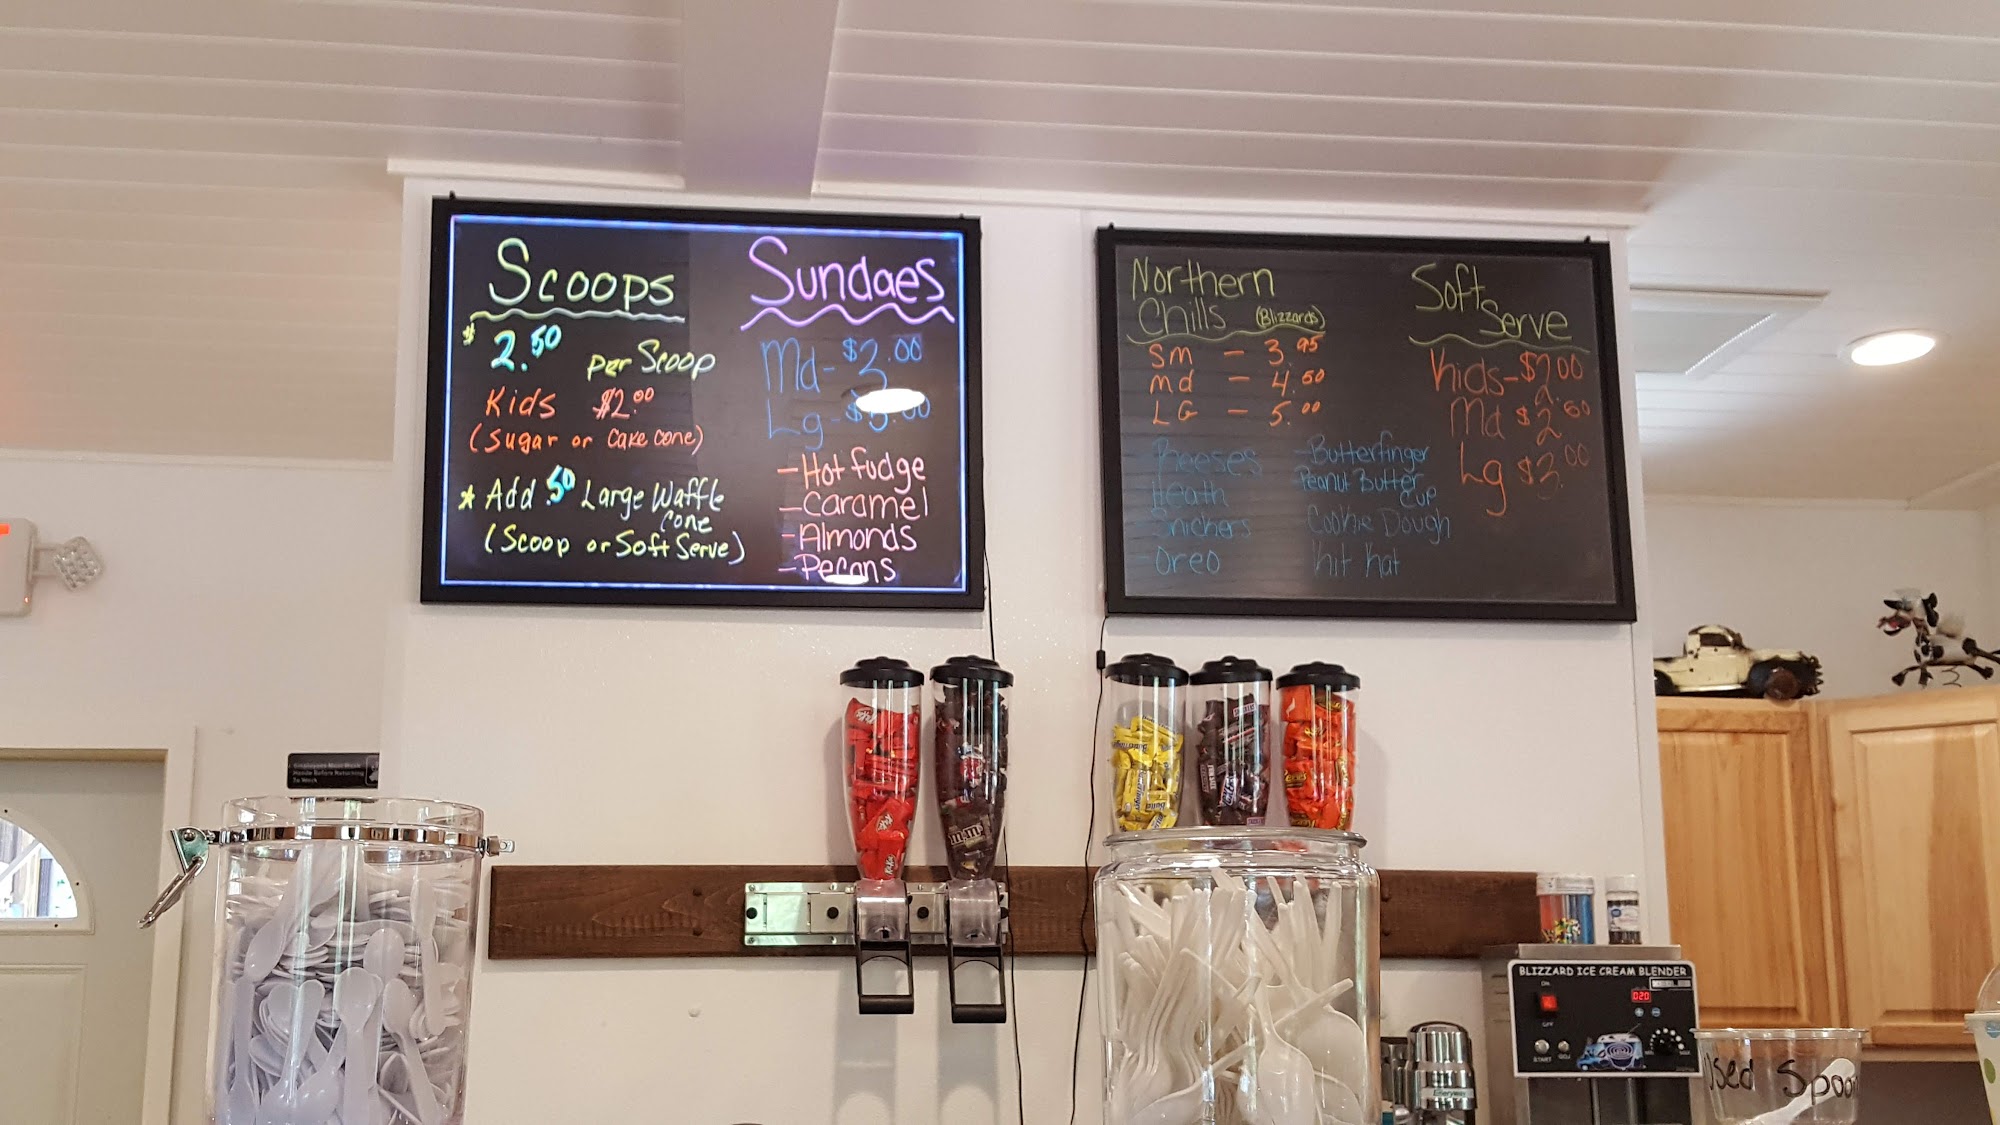 Scoops
$2.50 per Scoop
Kids $2.00
(Sugar or cake cone)
* Add .50 Large Waffle
cone
(Scoop or Soft Serve)
Sundaes
Md - $3.00
Lg - $5.00
- Hot fudge
- Caramel
- Almonds
- Pecans
Northern
Chills (Blizzards)
Sm - 3.95
md - 4.50
LG - 5.00
Reeses
Heath
Snickers
Oreo
- Butterfinger
Peanut Butter
Cup
Cookie Dough
Kit Kat
Soft
Serve
Kids - $2.00
Md $2.50
Lg $3.00
Employees Must Wash
Hands Before Returning
To Work
BLIZZARD ICE CREAM BLENDER
ON
OFF
020
START
MAX
Used Spoon